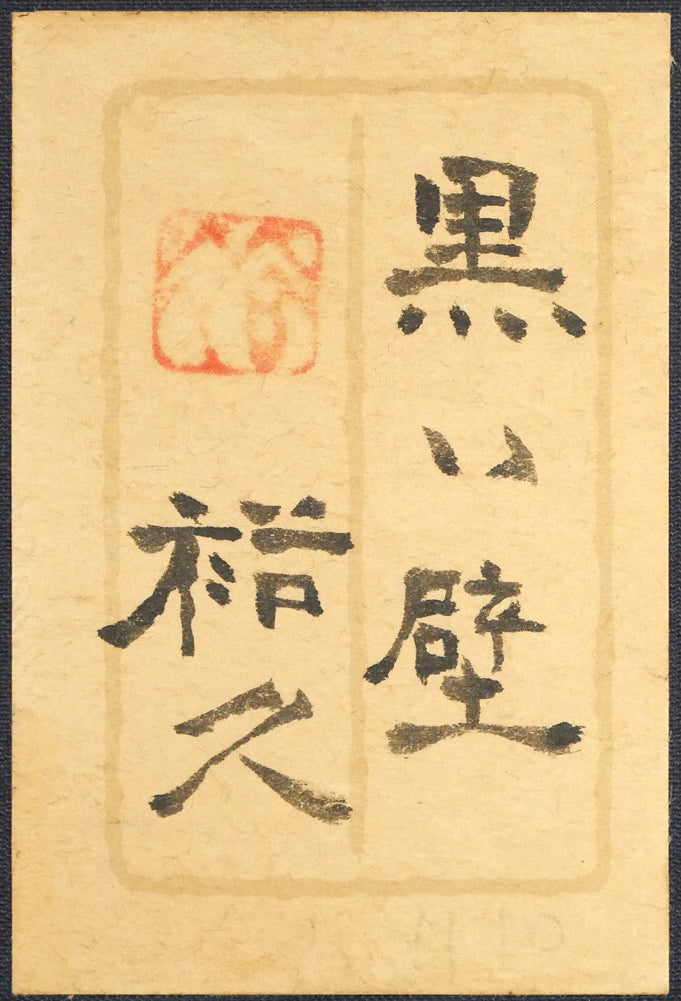 黒い壁
裕久